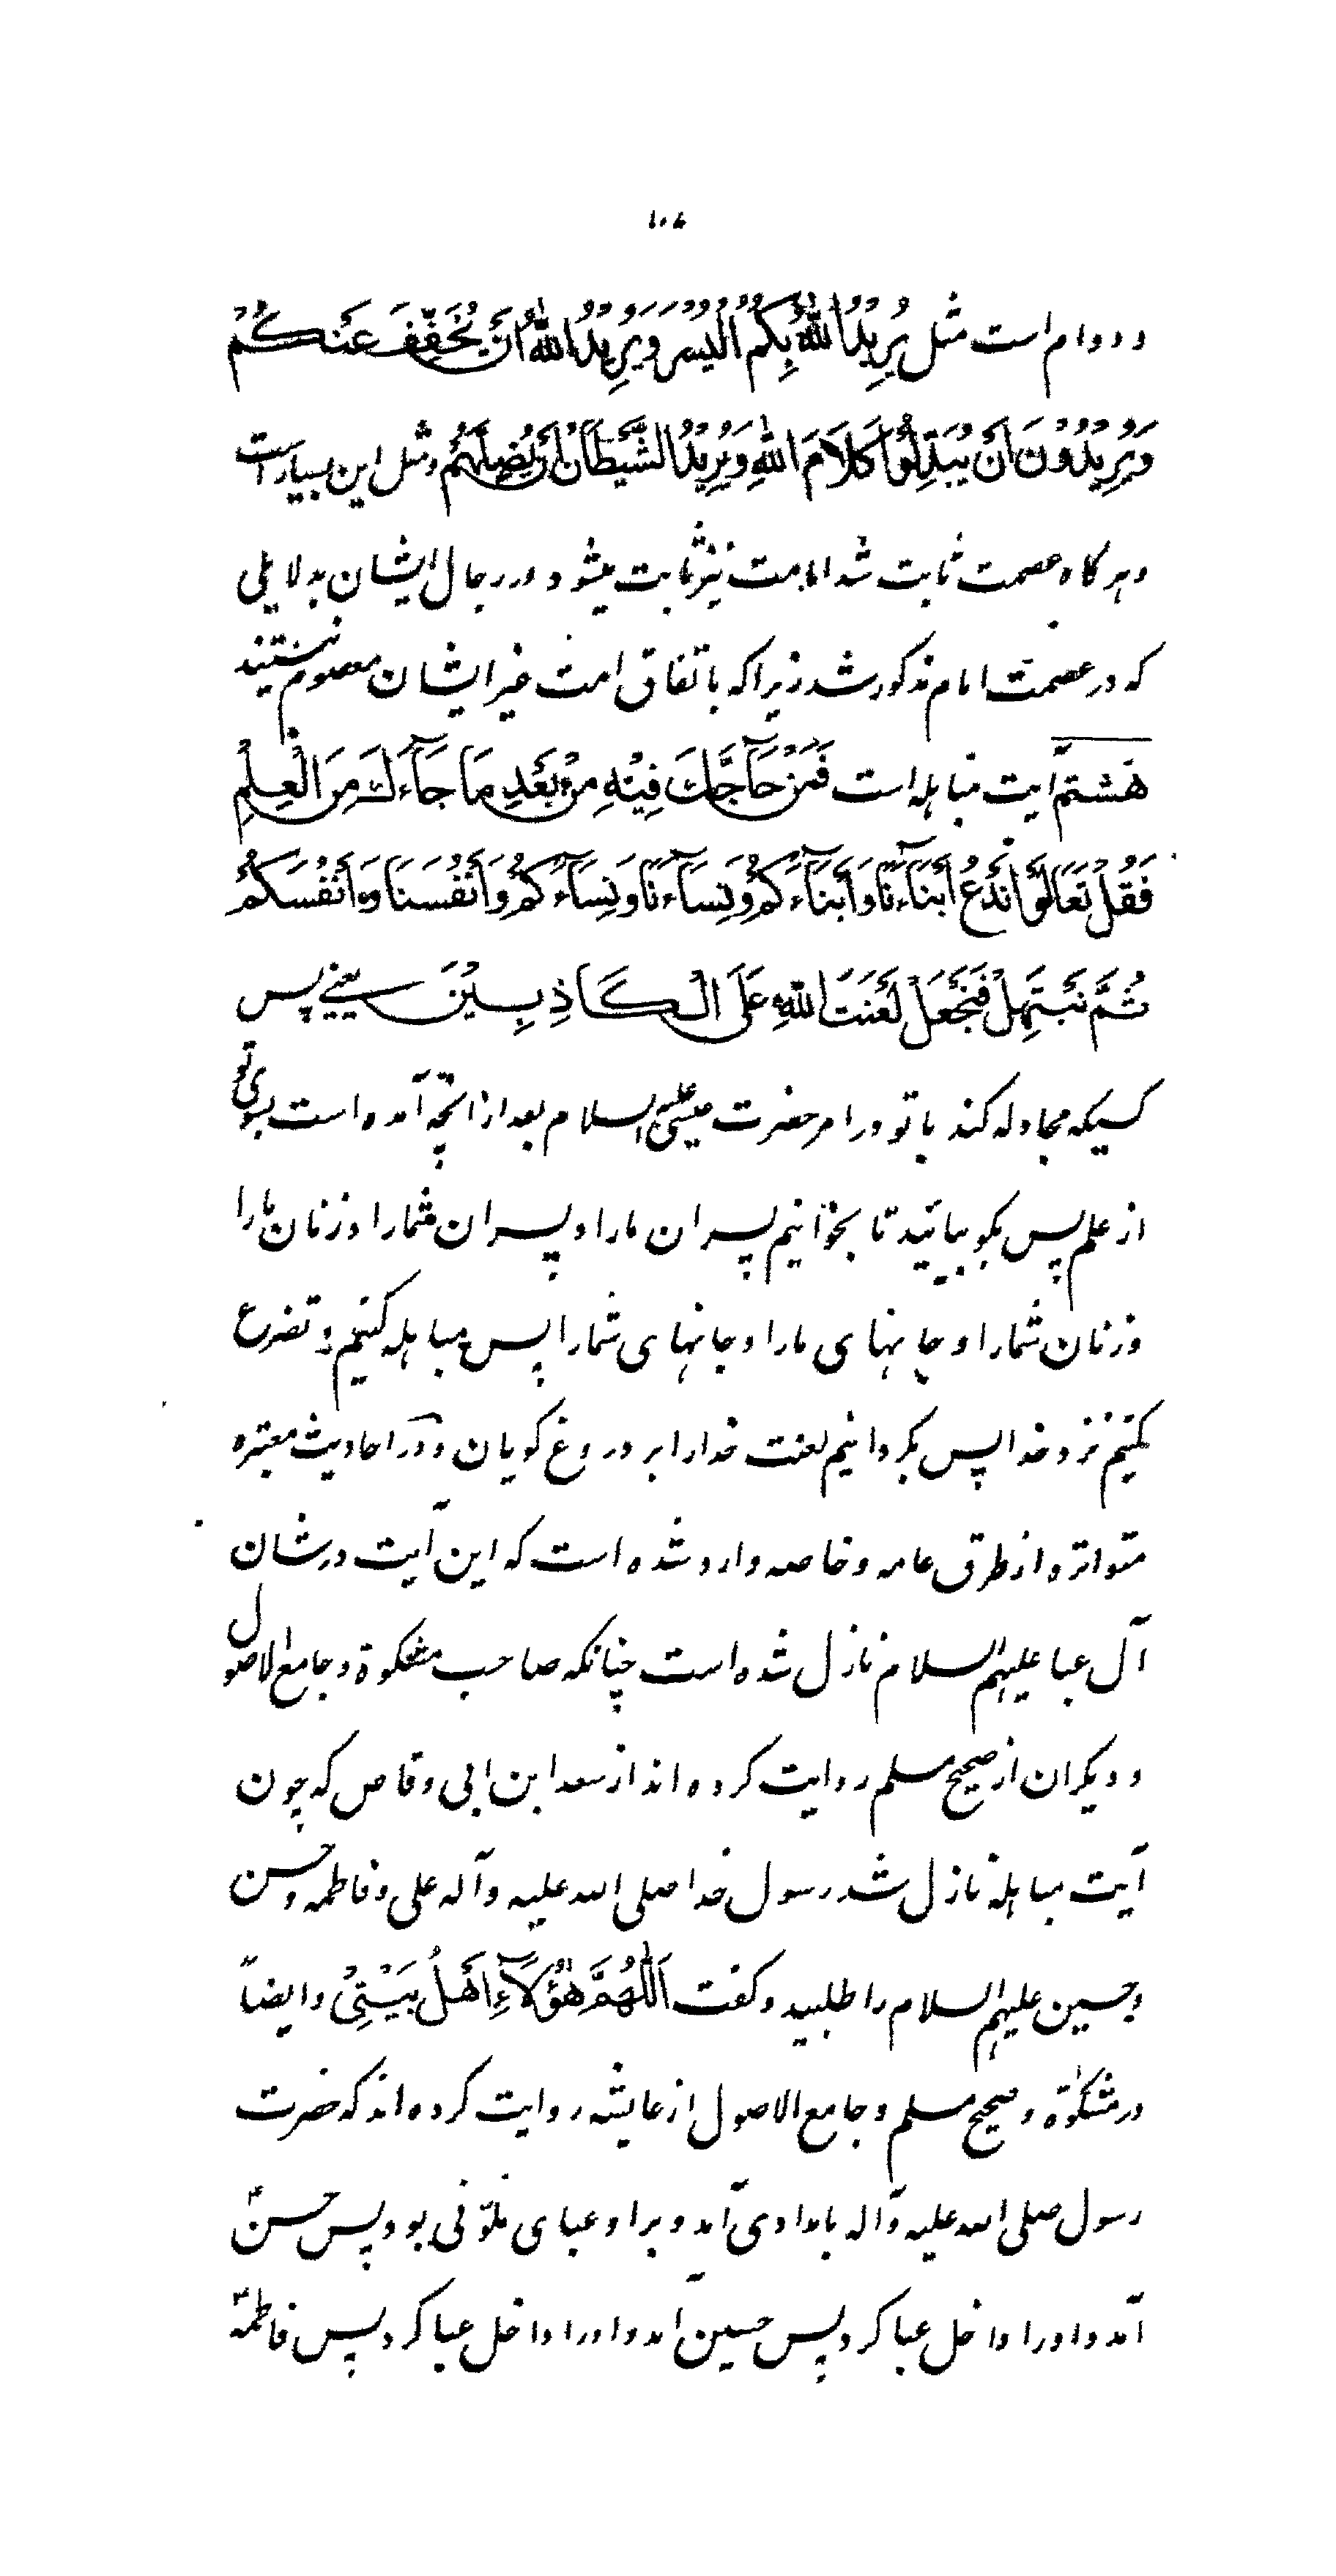 ۱۰۸
و دوام است مثل یُرِیْدُ اللهُ بِکُمُ الْیُسْرَ وَیُرِیْدُ اللهُ اَنْ یُخَفِّفَ عَنْکُمْ
وَیُرِیْدُوْنَ اَنْ یُبَدِّلُوْا کَلَامَ اللهِ وَیُرِیْدُ الشَّیْطَانُ اَنْ یُضِلَّهُمْ و مثل این بسیار است
و هر کاه عصمت ثابت شد امامت نیز ثابت میشود و در رجال ایشان بدلایلی
که در عصمت امام مذکور شد زیرا که باتفاق امت غیر ایشان معصوم نیستند
هَشتم آیت مباهله است فَمَنْ حَآجَّكَ فِیْهِ مِنْ بَعْدِ مَا جَآءَكَ مِنَ الْعِلْمِ
فَقُلْ تَعَالَوْا نَدْعُ اَبْنَآءَنَا وَاَبْنَآءَکُمْ وَنِسَآءَنَا وَنِسَآءَکُمْ وَاَنْفُسَنَا وَاَنْفُسَکُمْ
ثُمَّ نَبْتَهِلْ فَنَجْعَلْ لَعْنَتَ اللهِ عَلَی الْکَاذِبِیْنَ یعنے پس
کسیکه مجادله کند با تو در امر حضرت عیسی علیه السلام بعد از انچه آمده است بسوی تو
از علم پس بکو بیائید تا بخوانیم پسران ما را و پسران شما را و زنان ما را
و زنان شما را و جانهای ما را و جانهای شما را پس مباهله کنیم و تضرع
کنیم نزد خدا پس بکردانیم لعنت خدا را بر دروغ کویان و در احادیث معتبره
متواتره از طرق عامه و خاصه وارد شده است که این آیت در شان
آل عبا علیهم السلام نازل شده است چنانکه صاحب مشکوة و جامع الاصول
و دیکران از صحیح مسلم روایت کرده اند از سعد ابن ابی وقاص که چون
آیت مباهله نازل شد رسول خدا صلی الله علیه و آله علی و فاطمه و حسن
و حسین علیهم السلام را طلبید و کفت اَللّٰهُمَّ هٰؤُلَآءِ اَهْلُ بَیْتِیْ و ایضاً
در مشکوٰة و صحیح مسلم و جامع الاصول از عایشه روایت کرده اند که حضرت
رسول صلی الله علیه و آله بامدادی آمد و بر او عبای ملوّنی بود پس حسنؑ
آمد و او را داخل عبا کرد پس حسین آمد و او را داخل عبا کرد پس فاطمهؑ